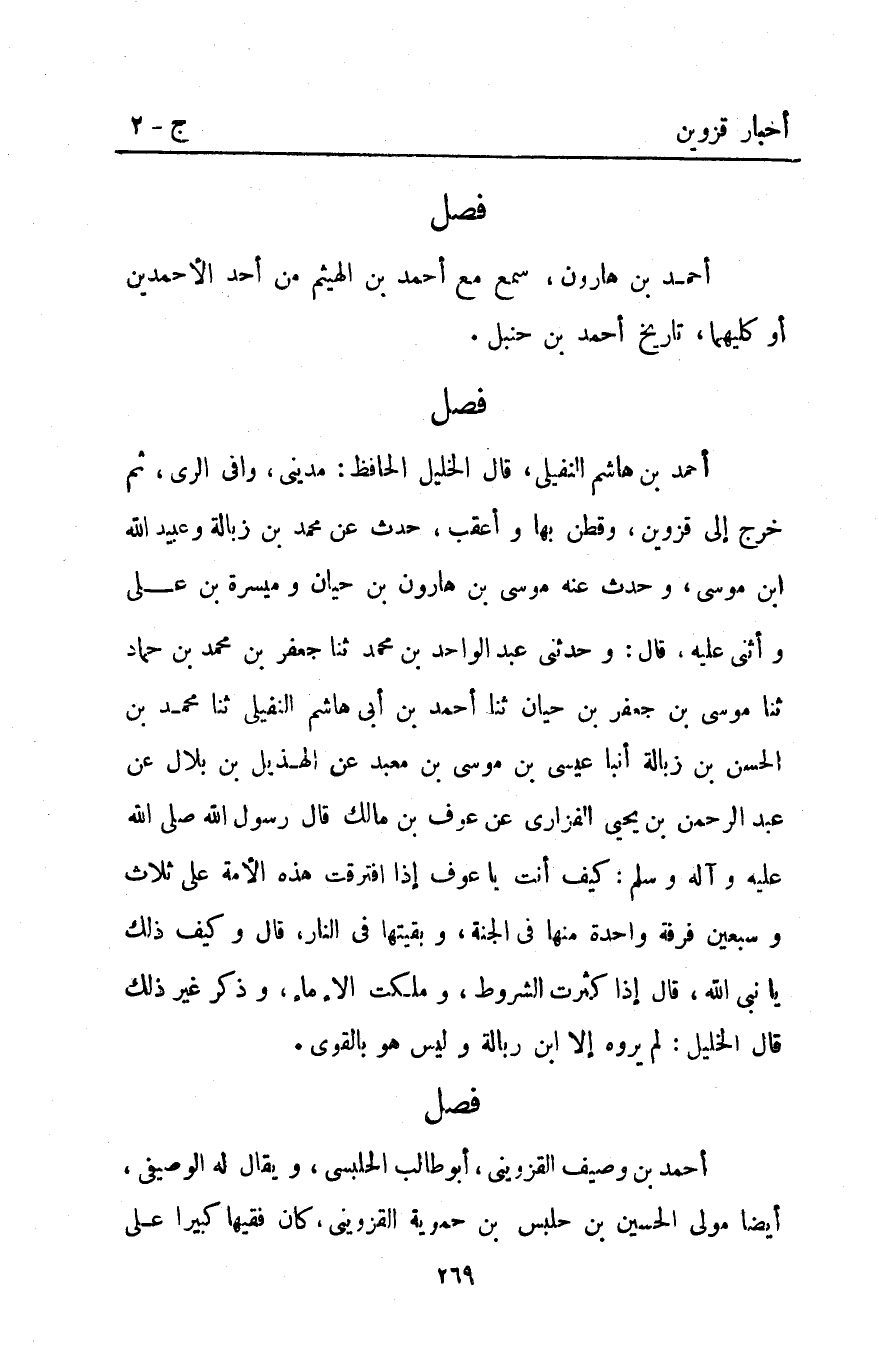 أخبار قزوين ج - ٢
فصل
أحمـد بن هارون، سمع مع أحمد بن الهيثم من أحد الأحمدين
أو كليهما، تاريخ أحمد بن حنبل .
فصل
أحمد بن هاشم النفيلى، قال الخليل الحافظ: مدينى، وافى الرى، ثم
خرج إلى قزوين، وقطن بها و أعقب، حدث عن محمد بن زبالة وعبيد الله
ابن موسى، و حدث عنه موسى بن هارون بن حيان و ميسرة بن عـــلى
و أثنى عليه، قال: و حدثنى عبد الواحد بن محمد ثنا جعفر بن محمد بن حماد
ثنا موسى بن جعفر بن حيان ثنا أحمد بن أبى هاشم النفيلى ثنا محمـد بن
الحسن بن زبالة أنبا عيسى بن موسى بن معبد عن الهـذيل بن بلال عن
عبد الرحمن بن يحيى الفزارى عن عوف بن مالك قال رسول الله صلى الله
عليه و آله و سلم: كيف أنت يا عوف إذا افترقت هذه الأمة على ثلاث
و سبعين فرقة واحدة منها فى الجنة، و بقيتها فى النار، قال و كيف ذلك
يا نبى الله، قال إذا كثرت الشروط، و ملكت الاماء، و ذكر غير ذلك
قال الخليل: لم يروه إلا ابن ربالة و ليس هو بالقوى .
فصل
أحمد بن وصيف القزوينى، أبو طالب الحلبسى، و يقال له الوصيفى،
أيضا مولى الحسين بن حلبس بن حموية القزوينى، كان فقيها كبيرا عـلى
٢٦٩